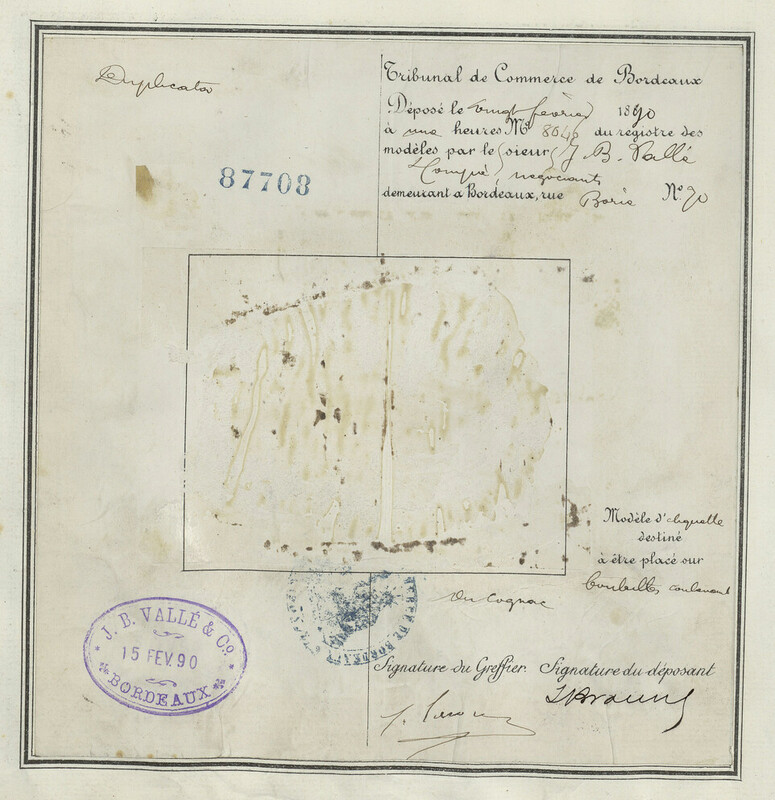 Duplicata
87708
Tribunal de Commerce de Bordeaux
Déposé le vingt février 1890
à une heures No 8045 du registre des
modèles par le sieur J. B. Vallé
& Compie, négociants
demeurant à Bordeaux, rue Borie No. 70
Modèle d'étiquette
destiné
à être placé sur
bouteilles contenant
du cognac
DE BORDEAUX
J. B. VALLÉ & Co.
15 FEV. 90
BORDEAUX
Signature du Greffier. Signature du déposant